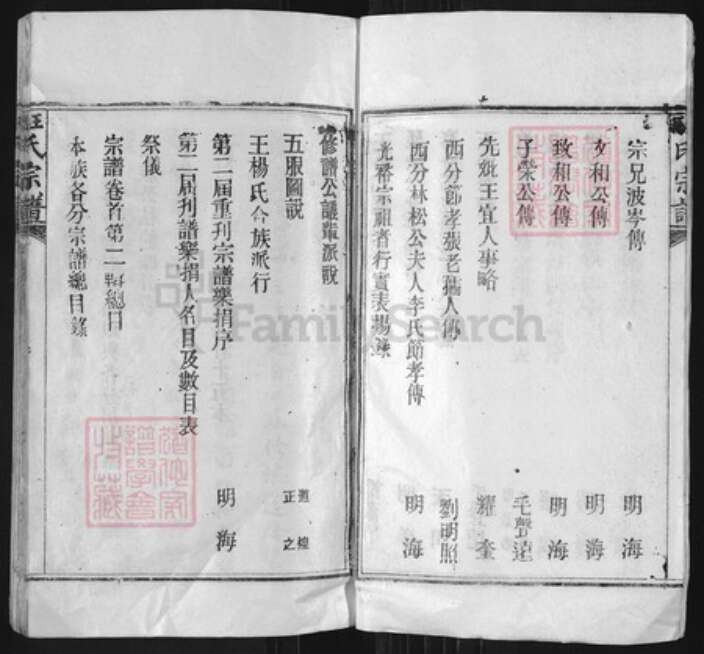 宗兄波岑傳 明海
文和公傳 明海
致和公傳 明海
子榮公傳 毛聲遠
先妣王宜人事略 耀奎
西分節孝張老孺人傳 劉明照
西分林松公夫人李氏節孝傳 明海
光裔宗祖耆行實表揚錄
修譜公議輩派説
五服圖説 正之
王楊氏合族派行
第二届重刊宗譜樂捐序 明海
第二届刊譜樂捐人名目及數目表
祭儀
宗譜卷首第二册總目
本族各分宗譜總目錄
王氏宗譜
FamilySearch